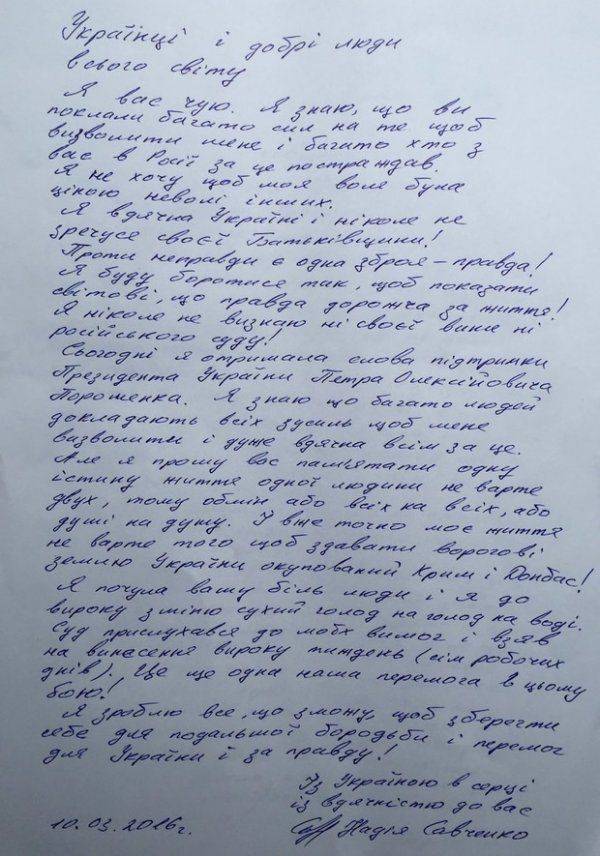 Українці і добрі люди
всього світу
Я вас чую. Я знаю, що ви
поклали багато сил на те щоб
визволити мене і багато хто з
вас в Росії за це постраждав.
Я не хочу щоб моя воля була
ціною неволі інших.
Я вдячна Україні і ніколе не
зречуся своєї Батьківщини!
Проти неправди є одна зброя – правда!
Я буду боротися так, щоб показати
світові, що правда дорожча за життя!
Я ніколе не визнаю ні своєї вини ні
російського суду!
Сьогодні я отримала слова підтринки
Президента України Петра Олексійовича
Порошенка. Я знаю що багато людей
докладають всіх зусиль щоб мене
визволити і дуже вдячна всім за це.
Але я прошу вас пам'ятати одну
істину життя одної людини не варте
двух, тому обмін або всіх на всіх, або
душі на душу. І вже точно моє життя
не варте того щоб здавати ворогові
землю України окупований Крим і Донбас!
Я почула вашу біль люди і я до
вироку змінюю сухий голод на голод на воді.
Суд прислухався до моїх вимог і взяв
на винесення вироку тиждень (сім робочих
днів). Це ще одна наша перемога в цьому
бою!
Я зроблю все, що зможу, щоб зберегти
себе для подальшої бородьби і перемог
для України і за правду!
Із Україною в серці
із вдячністю до вас
10.03.2016г. Надія Савченко